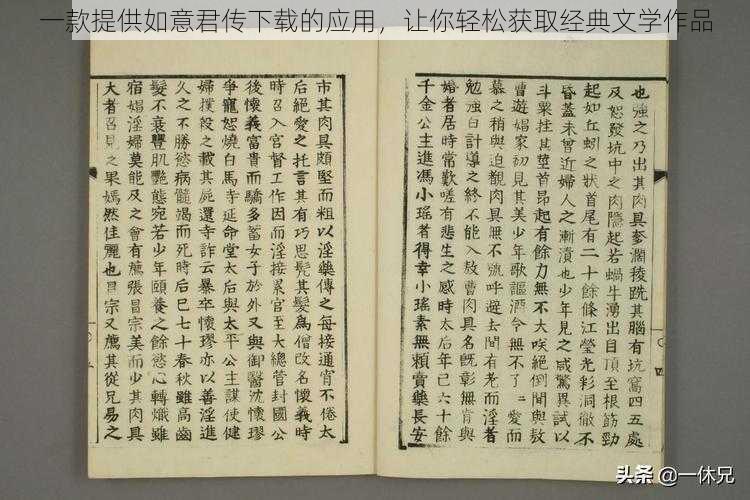 一款提供如意君传下载的应用，让你轻松获取经典文学作品
也強之乃出其肉具麥瀾稜跣其腦有坑窩四五處
及怒發坑中之肉隱起若蝸牛湧出目頂至根筋勁
起如丘蚓之狀首尾有二十餘條江瑩光彩洞徹不
昏蓋未曾近婦人之漸漬也少年見之咸驚異試以
斗粟挂其莖首昂起有餘力無不大咲絕倒間與敖
曹遊娼家初見其美少年歌謳酒令無不了〻愛而
慕之稍與迫覩肉具無不號呼避去間有老而淫者
勉強百計導之終不能入敖曹肉具名既彰無肯與
婚者居時常歎嗟有悲生之感時太后年已六十餘
千金公主進馮小瑤者得幸小瑤素無賴賣藥長安
市其肉具頗堅而粗以淫藥傳之每接通宵不倦太
后絕愛之托言其有巧思髡其髮爲僧改名懷義時
時召入宮督工作因而淫接累官至大總管封國公
後懷義富貴而驕多蓄女子於外又與御醫沈懷璆
爭寵怒燒白馬寺延命堂太后與太平公主謀使健
婦撲殺之載其屍還寺詐云暴卒懷璆亦以善淫進
久之不勝慾病髓竭而死時后巳七十春秋雖高齒
髮不衰豐肌艷態宛若少年頤養之餘慾心轉熾雖
宿娼淫婦莫能及之會有薦張昌宗美而少其肉具
大者召見之果嫣然佳麗也昌宗又薦其從兄易之
四
五
头条 @一休兄